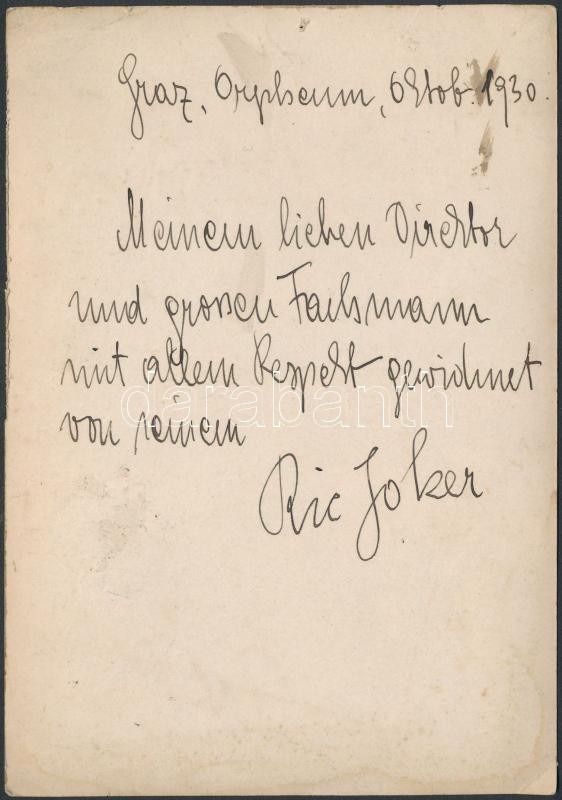 Graz, Orpheum, Oktob. 1930.
Meinem lieben Direktor
und grossen Fachsmann
mit allem Respekt gewidmet
von seinem
Ric Joker
darabanth